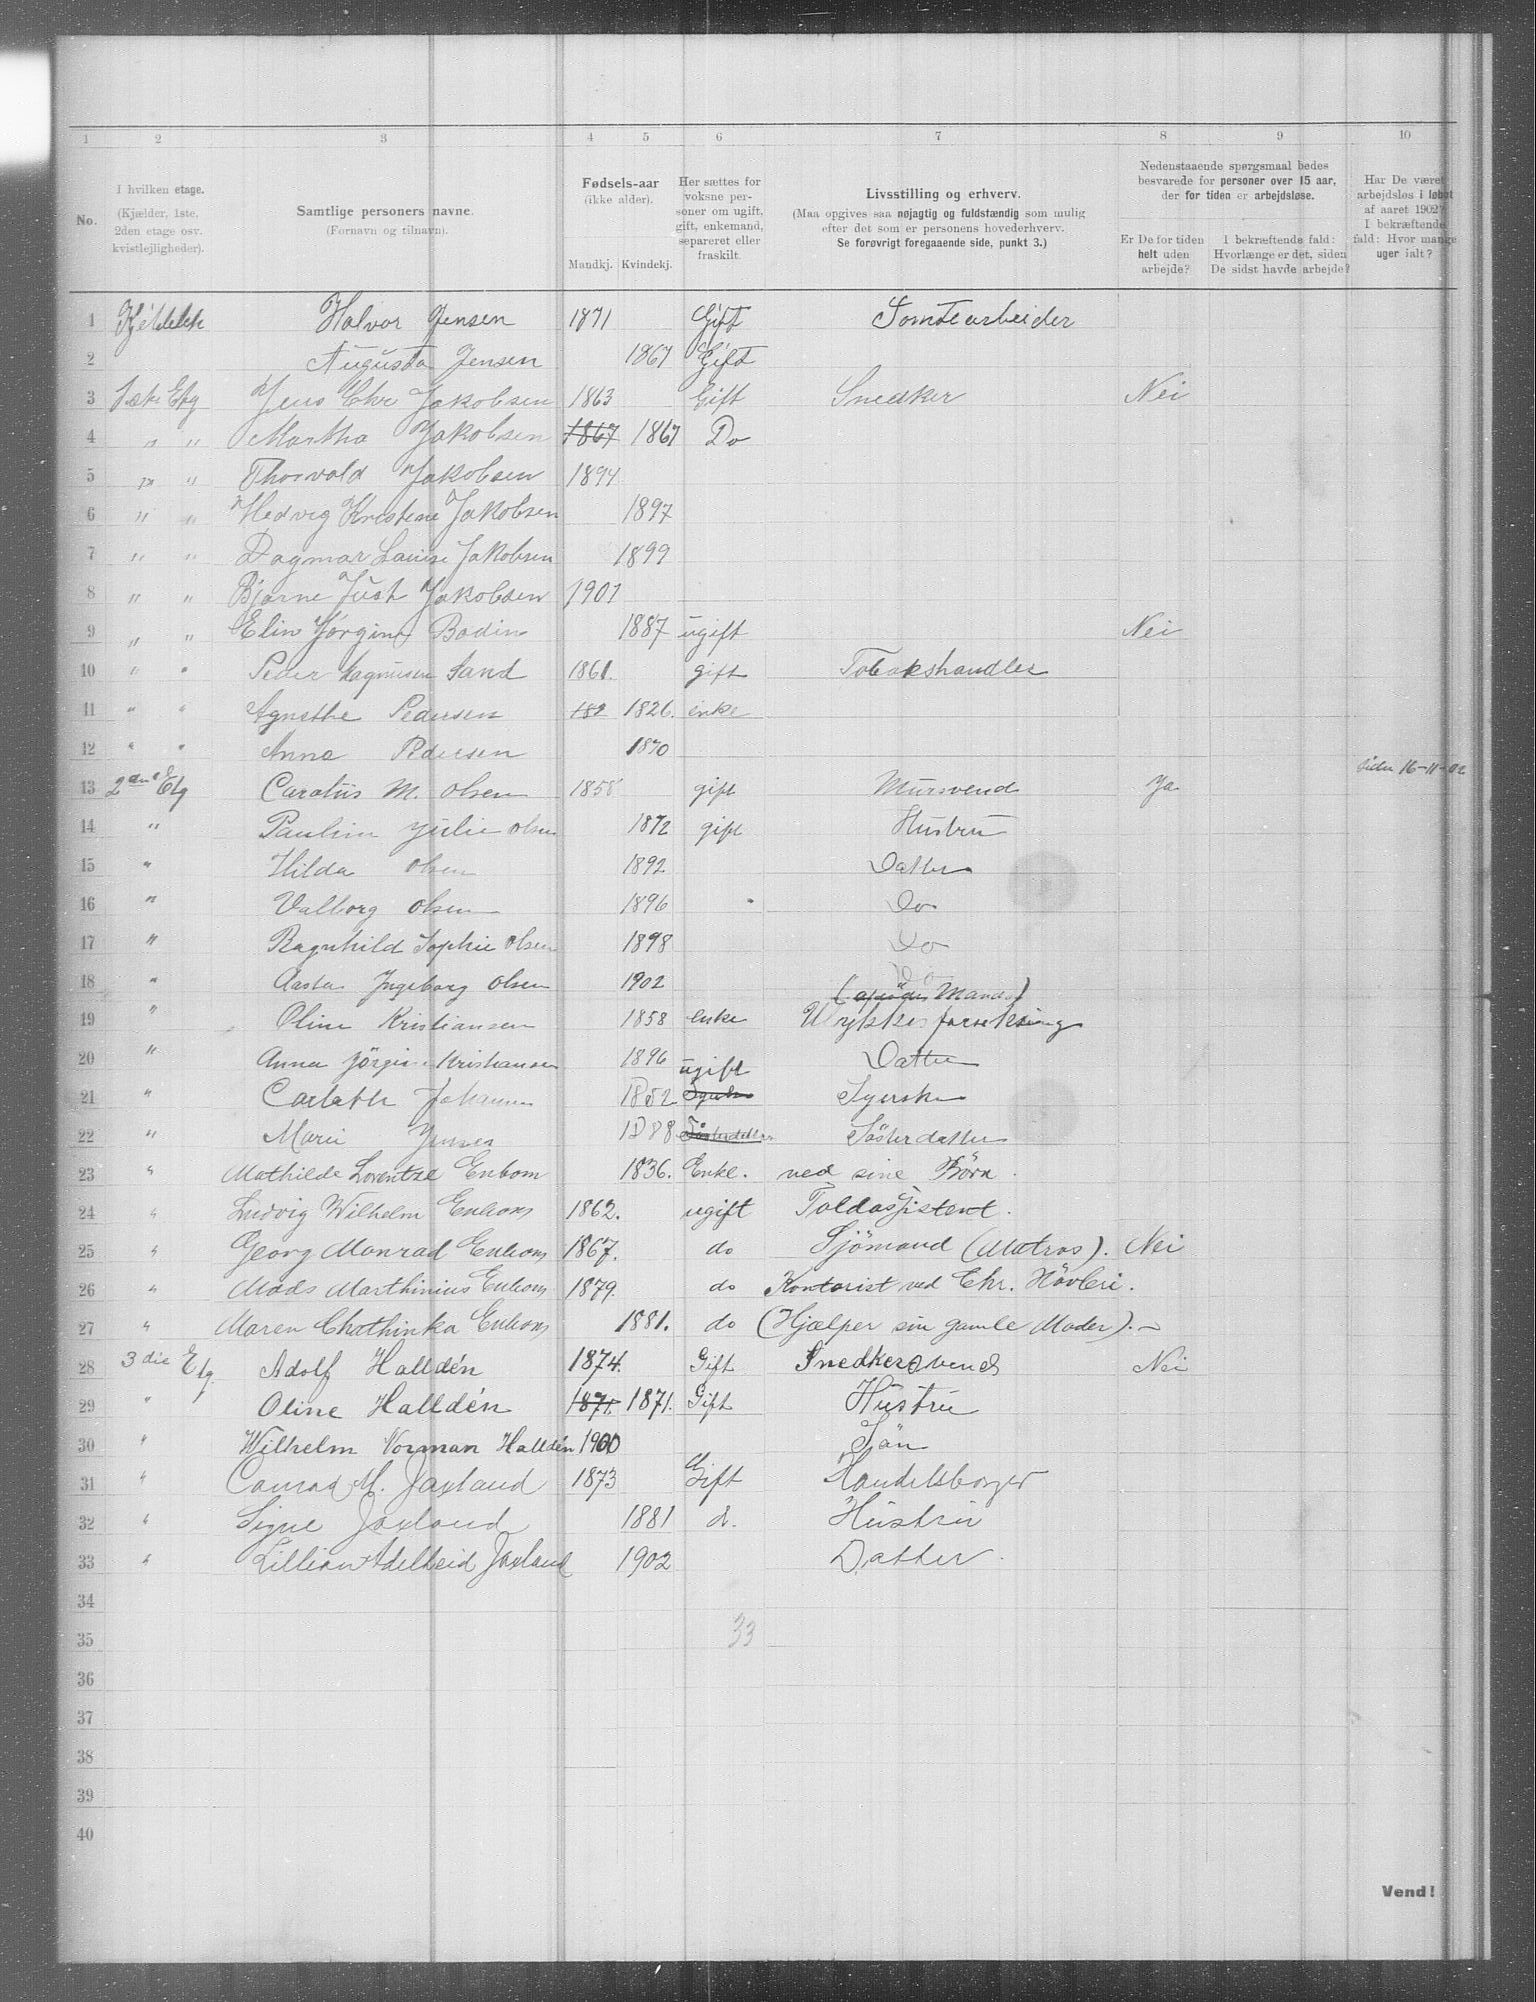 1 2 3 4 5 6 7 8 9 10
No.
I hvilken etage.
(Kjælder, 1ste,
2den etage osv.
kvistlejligheder).
Samtlige personers navne.
(Fornavn og tilnavn).
Fødsels-aar
(ikke alder).
Mandkj. Kvindekj.
Her sættes for
voksne per-
soner om ugift,
gift, enkemand,
separeret eller
fraskilt.
Livsstilling og erhverv.
(Maa opgives saa nøjagtig og fuldstændig som mulig
efter det som er personens hovederhverv.
Se forøvrigt foregaaende side, punkt 3.)
Nedenstaaende spørgsmaal bedes
besvarede for personer over 15 aar,
der for tiden er arbejdsløse.
Er De for tiden
helt uden
arbejde?
I bekræftende fald:
Hvorlænge er det, siden
De sidst havde arbejde?
Har De været
arbejdsløs i løbet
af aaret 1902?
I bekræftende
fald: Hvor mange
uger ialt?
1 Halvor Jensen 1871 Gift Tomtearbeider
2 Augusta Jensen 1867 Gift
3 1ste Etg Jens Chr Jakobsen 1863 Gift Snedker Nei
4 " " Martha Jakobsen 1867 1867 Do
5 " " Thorvald Jakobsen 1894
6 " " Hedvig Kristine Jakobsen 1897
7 " " Dagmar Louise Jakobsen 1899
8 " " Bjarne Just Jakobsen 1901
9 " " Elin Jørgine Bodin 1887 ugift Nei
10 " " Peder Magnusen Sand 1861. gift Tobakshandler
11 " " Agnethe Pedersen 182 1826. enke
12 " " Anna Pedersen 1870
13 2den Etg Carolus M. Olsen 1858 gift Mursvend Ja siden 16-11-02
14 " Paulin Julie Olsen 1872 gift Hustru
15 " Hilda Olsen 1892 Datter
16 " Valborg Olsen 1896 Do
17 " Ragnhild Sophie Olsen 1898 Do
18 " Aasta Ingeborg Olsen 1902 Do
19 " Oline Kristiansen 1858 enke ( Mands)
Ulykkesforsekring
20 " Anna Jörgine Kristiansen 1896 Datter
21 " Johannesen 1852 ugift Syerske
22 " Marie Jensen 1888 Søsterdatter Søsterdatter
23 " Mathilde Lorentze Enbom 1836. Enke. ved sine Börn.
24 " Ludvig Wilhelm Enbom 1862. ugift Toldassistent.
25 " Georg Monrad Enbom 1867. do Sjömand (Matros). Nei
26 " Mads Marthinius Enbom 1879. do Kontorist ved Chr. Hövleri.
27 " Maren Chathinka Enbom 1881. do (Hjælper sin gamle Moder). –
28 3die Etg. Adolf Halldén 1874. Gift Snedkersvend Nei
29 " Oline Halldén 1871. 1871. Gift Hustru
30 " Wilhelm Norman Halldén 1900 Sön
31 " Conrad M. Jaxland 1873 Gift Handelsborger
32 " Signe Jaxland 1881 d. Hustru
33 " Lillian Adelheid Jaxland 1902 Datter.
34
35 33
36
37
38
39
40
Vend!